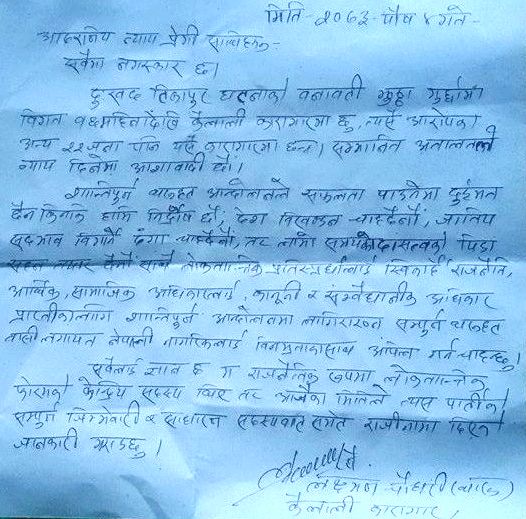 मिति - २०७३ - पौष ४ गते -
आदरणीय न्याय प्रेमी साथिहरु -
सबैमा नमस्कार छ।
दुःखद टिकापुर घटनाको बनावटी झुठ्ठा मुद्दामा
विगत महिनादेखि कैलाली कारागारमा छु, त्यसै आरोपका
अन्य २२ जना पनि यसै कारागारमा छन्। सम्मानित अदालतले
न्याय दिनेमा आशावादी छौं।
शान्तिपूर्ण थरुहट आन्दोलनले सफलता पाउनेमा दुईमत
छैन किनकि हामि निर्दोष छौं, देश विखण्डन चाहदैनौं, जातिय
सदभाव बिगार्ने दंगा चाहदैनौं, तर लामो समयको दासत्वको पिडा
सहन लोकतान्त्रिक प्रतिस्पर्धालाई स्विकार्दै राजनैति,
आर्थिक, सामाजिक अधिकारलाई, कानूनी र संम्वैधानीक अधिकार
प्राप्तीकालागि शान्तिपूर्ण आन्दोलनमा लागिराख्न सम्पुर्ण थरुहट
वासी लगायत नेपाली नागरिकलाई विनम्रताकासाथ अपिल गर्न चाहन्छु।
सबैलाई ज्ञात छ म राजनैतिक रुपमा लोकतान्त्रिक
फोरमको केन्द्रिय सदस्य थिए तर आजैका मितिले त्यस पार्टीको
सम्पुर्ण जिम्मेवारी र साधारण सदस्यबाट समेत राजीनामा दिएको
जानकारी गराउछु।
लक्ष्मण चौधरी (थारु)
कैलाली कारागार।